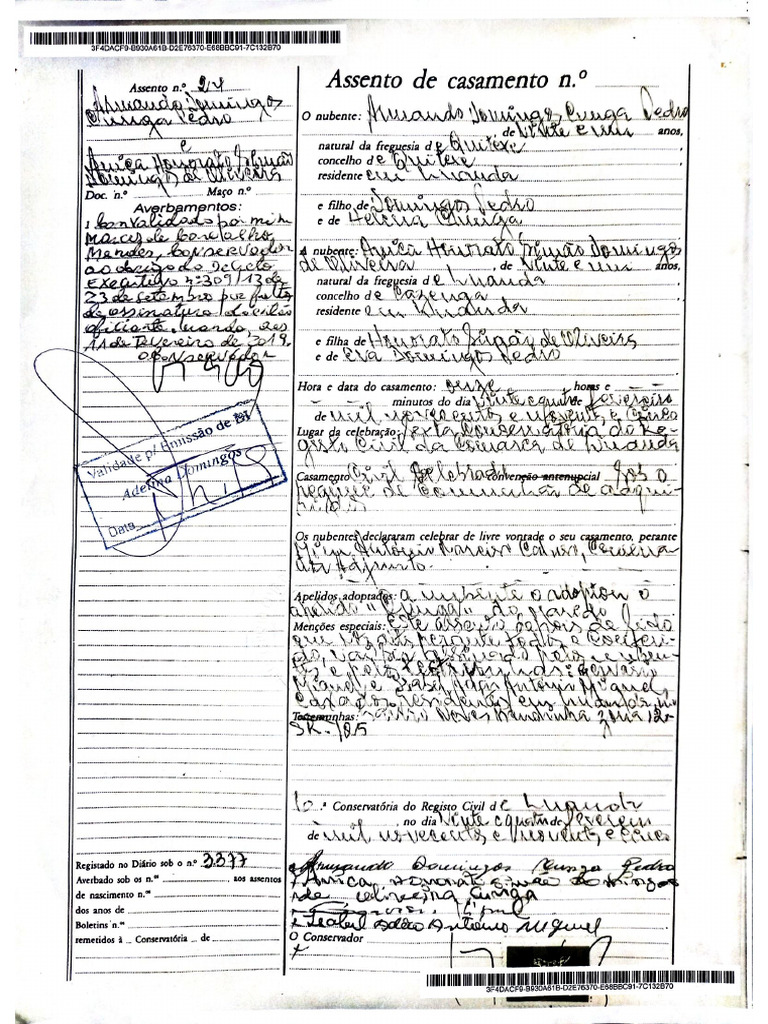 3F4DACF9-B930A61B-D2E76370-E68BBC91-7C132B70
Assento n.º 24
Armando Domingos
Cunga Pedro
e
Anica Honorato Simão
Domingos de Oliveira
Doc. n.º Maço n.º
Averbamentos:
1 Convalidado por mim
Mendes, Conservador
ao abrigo do Decreto
executivo nº 309/13 de
23 de Setembro por falta
de assinatura do
oficiante. Luanda, aos
de Fevereiro de 2019.
o Conservador
Validade p/ Emissão de BI
Adelina Domingos
Data
Registado no Diário sob o n.º 3377
Averbado sob os n.ºˢ aos assentos
de nascimento n.ºˢ
dos anos de
Boletins n.ºˢ
remetidos à Conservatória de
Assento de casamento n.º
O nubente: Armando Domingos Cunga Pedro
de vinte e um anos,
natural da freguesia de Quitexe
concelho de Quitexe,
residente em Luanda
e filho de Domingos Pedro
e de Helena Cunga,
A nubente: Anica Honorato Simão Domingos
de Oliveira, de vinte e um anos,
natural da freguesia de Luanda
concelho de Cazenga
residente em Luanda
e filha de Honorato Simão de Oliveira
e de Eva Domingos Pedro
Hora e data do casamento: onze horas e
minutos do dia vinte e quatro de Fevereiro
de mil novecentos e noventa e cinco
Lugar da celebração: sexta Conservatória do Re-
gisto Civil da Comarca de Luanda
Casamento Civil Celebrado convenção antenupcial sob o
regime de Comunhão de adqui-
ridos
Os nubentes declararam celebrar de livre vontade o seu casamento, perante
Adjunto.
Apelidos adoptados: a nubente adoptou o
apelido "Cunga" do marido
Menções especiais: Este assento depois de lido
Miguel e Isabel João António Miguel,
casados residentes em Luanda, no
Testemunhas: bairro Neves Bendinha zona 12-
.ª Conservatória do Registo Civil de Luanda
, no dia vinte e quatro de Fevereiro
de mil novecentos e noventa e cinco
Armando Domingos Cunga Pedro
Anica Honorato Simão Domingos
de Oliveira Cunga
Isabel João António Miguel
O Conservador
3F4DACF9-B930A61B-D2E76370-E68BBC91-7C132B70